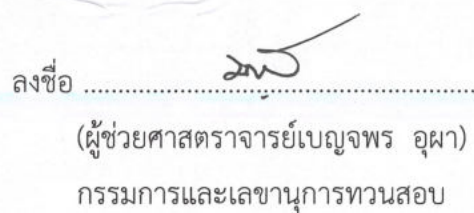 ลงชื่อ ................................................
(ผู้ช่วยศาสตราจารย์เบญจพร อุผา)
กรรมการและเลขานุการทวนสอบ